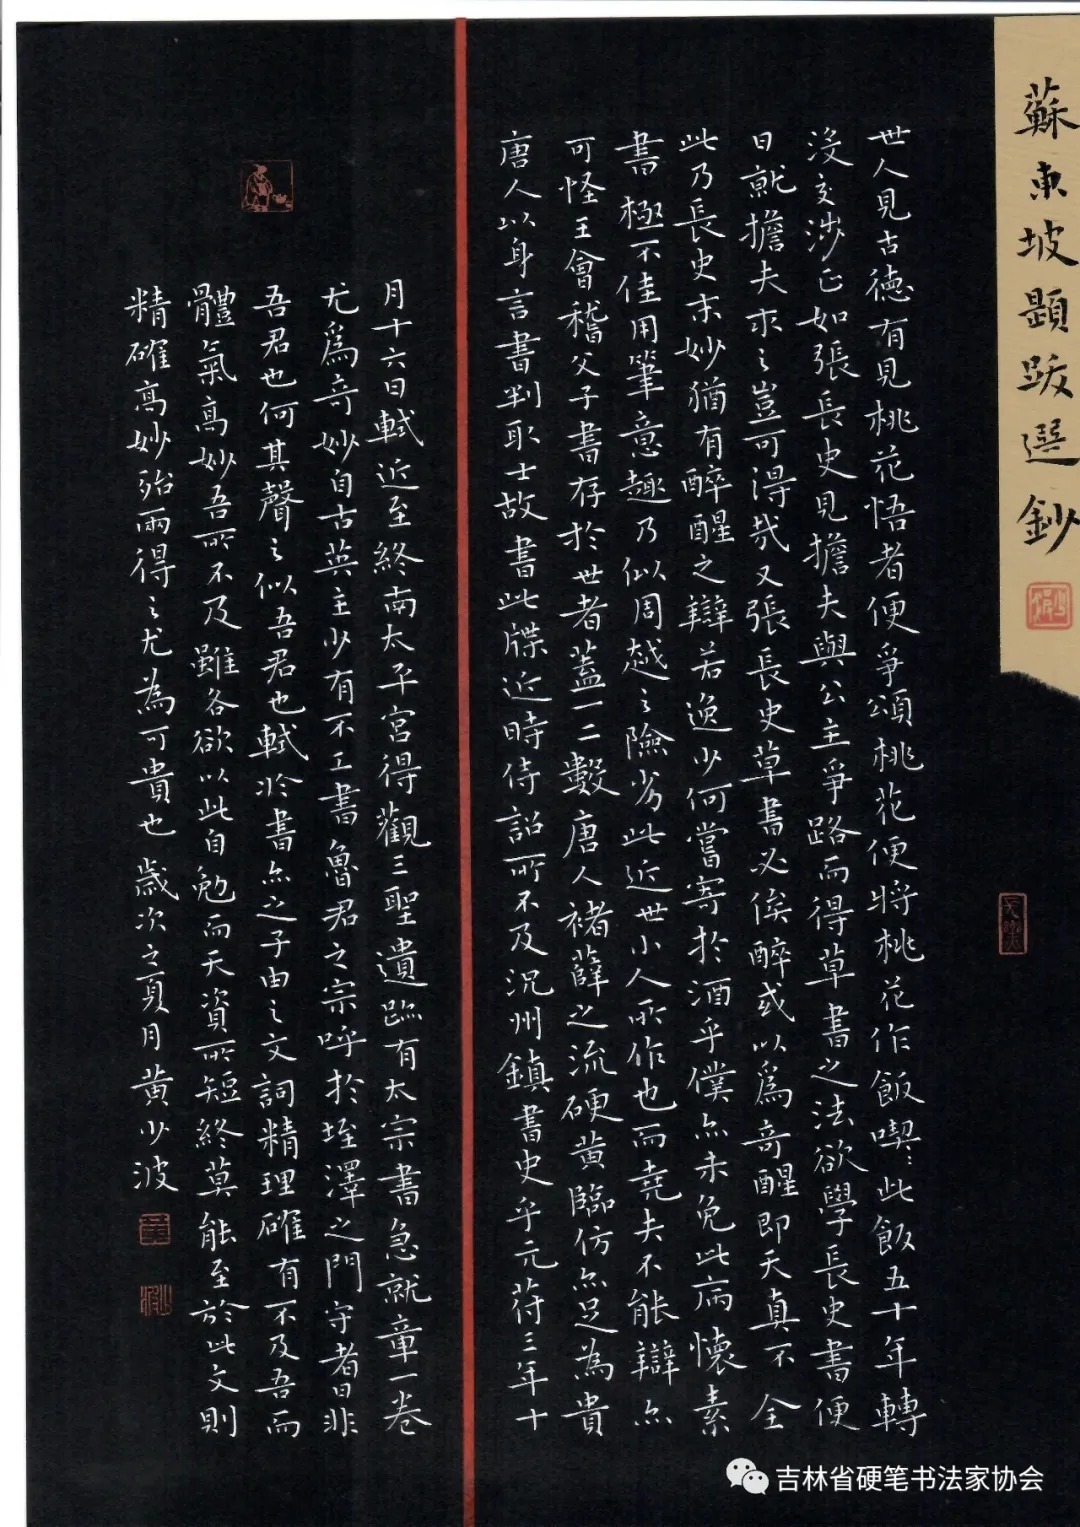 蘇東坡題跋選鈔
世人見古德有見桃花悟者便爭頌桃花便將桃花作飯喫此飯五十年轉
沒交涉正如張長史見擔夫與公主爭路而得草書之法欲學長史書便
日就擔夫求之豈可得哉又張長史草書必俟醉或以爲奇醒即天真不全
此乃長史未妙猶有醉醒之辯若逸少何嘗寄於酒乎僕亦未免此病懷素
書極不佳用筆意趣乃似周越之險劣此近世小人所作也而堯夫不能辯亦
可怪王會稽父子書存於世者蓋一二數唐人褚薛之流硬黃臨仿亦足為貴
唐人以身言書判取士故書此牒近時待詔所不及況州鎮書史乎元符三年十
月十六日軾近至終南太平宮得觀三聖遺跡有太宗書急就章一卷
尤爲奇妙自古英主少有不工書魯君之宋呼於垤澤之門守者曰非
吾君也何其聲之似吾君也軾於書亦云子由之文詞精理確有不及吾而
體氣高妙吾所不及雖各欲以此自勉而天資所短終莫能至於此文則
精確高妙殆兩得之尤為可貴也歲次之夏月黄少波
吉林省硬笔书法家协会